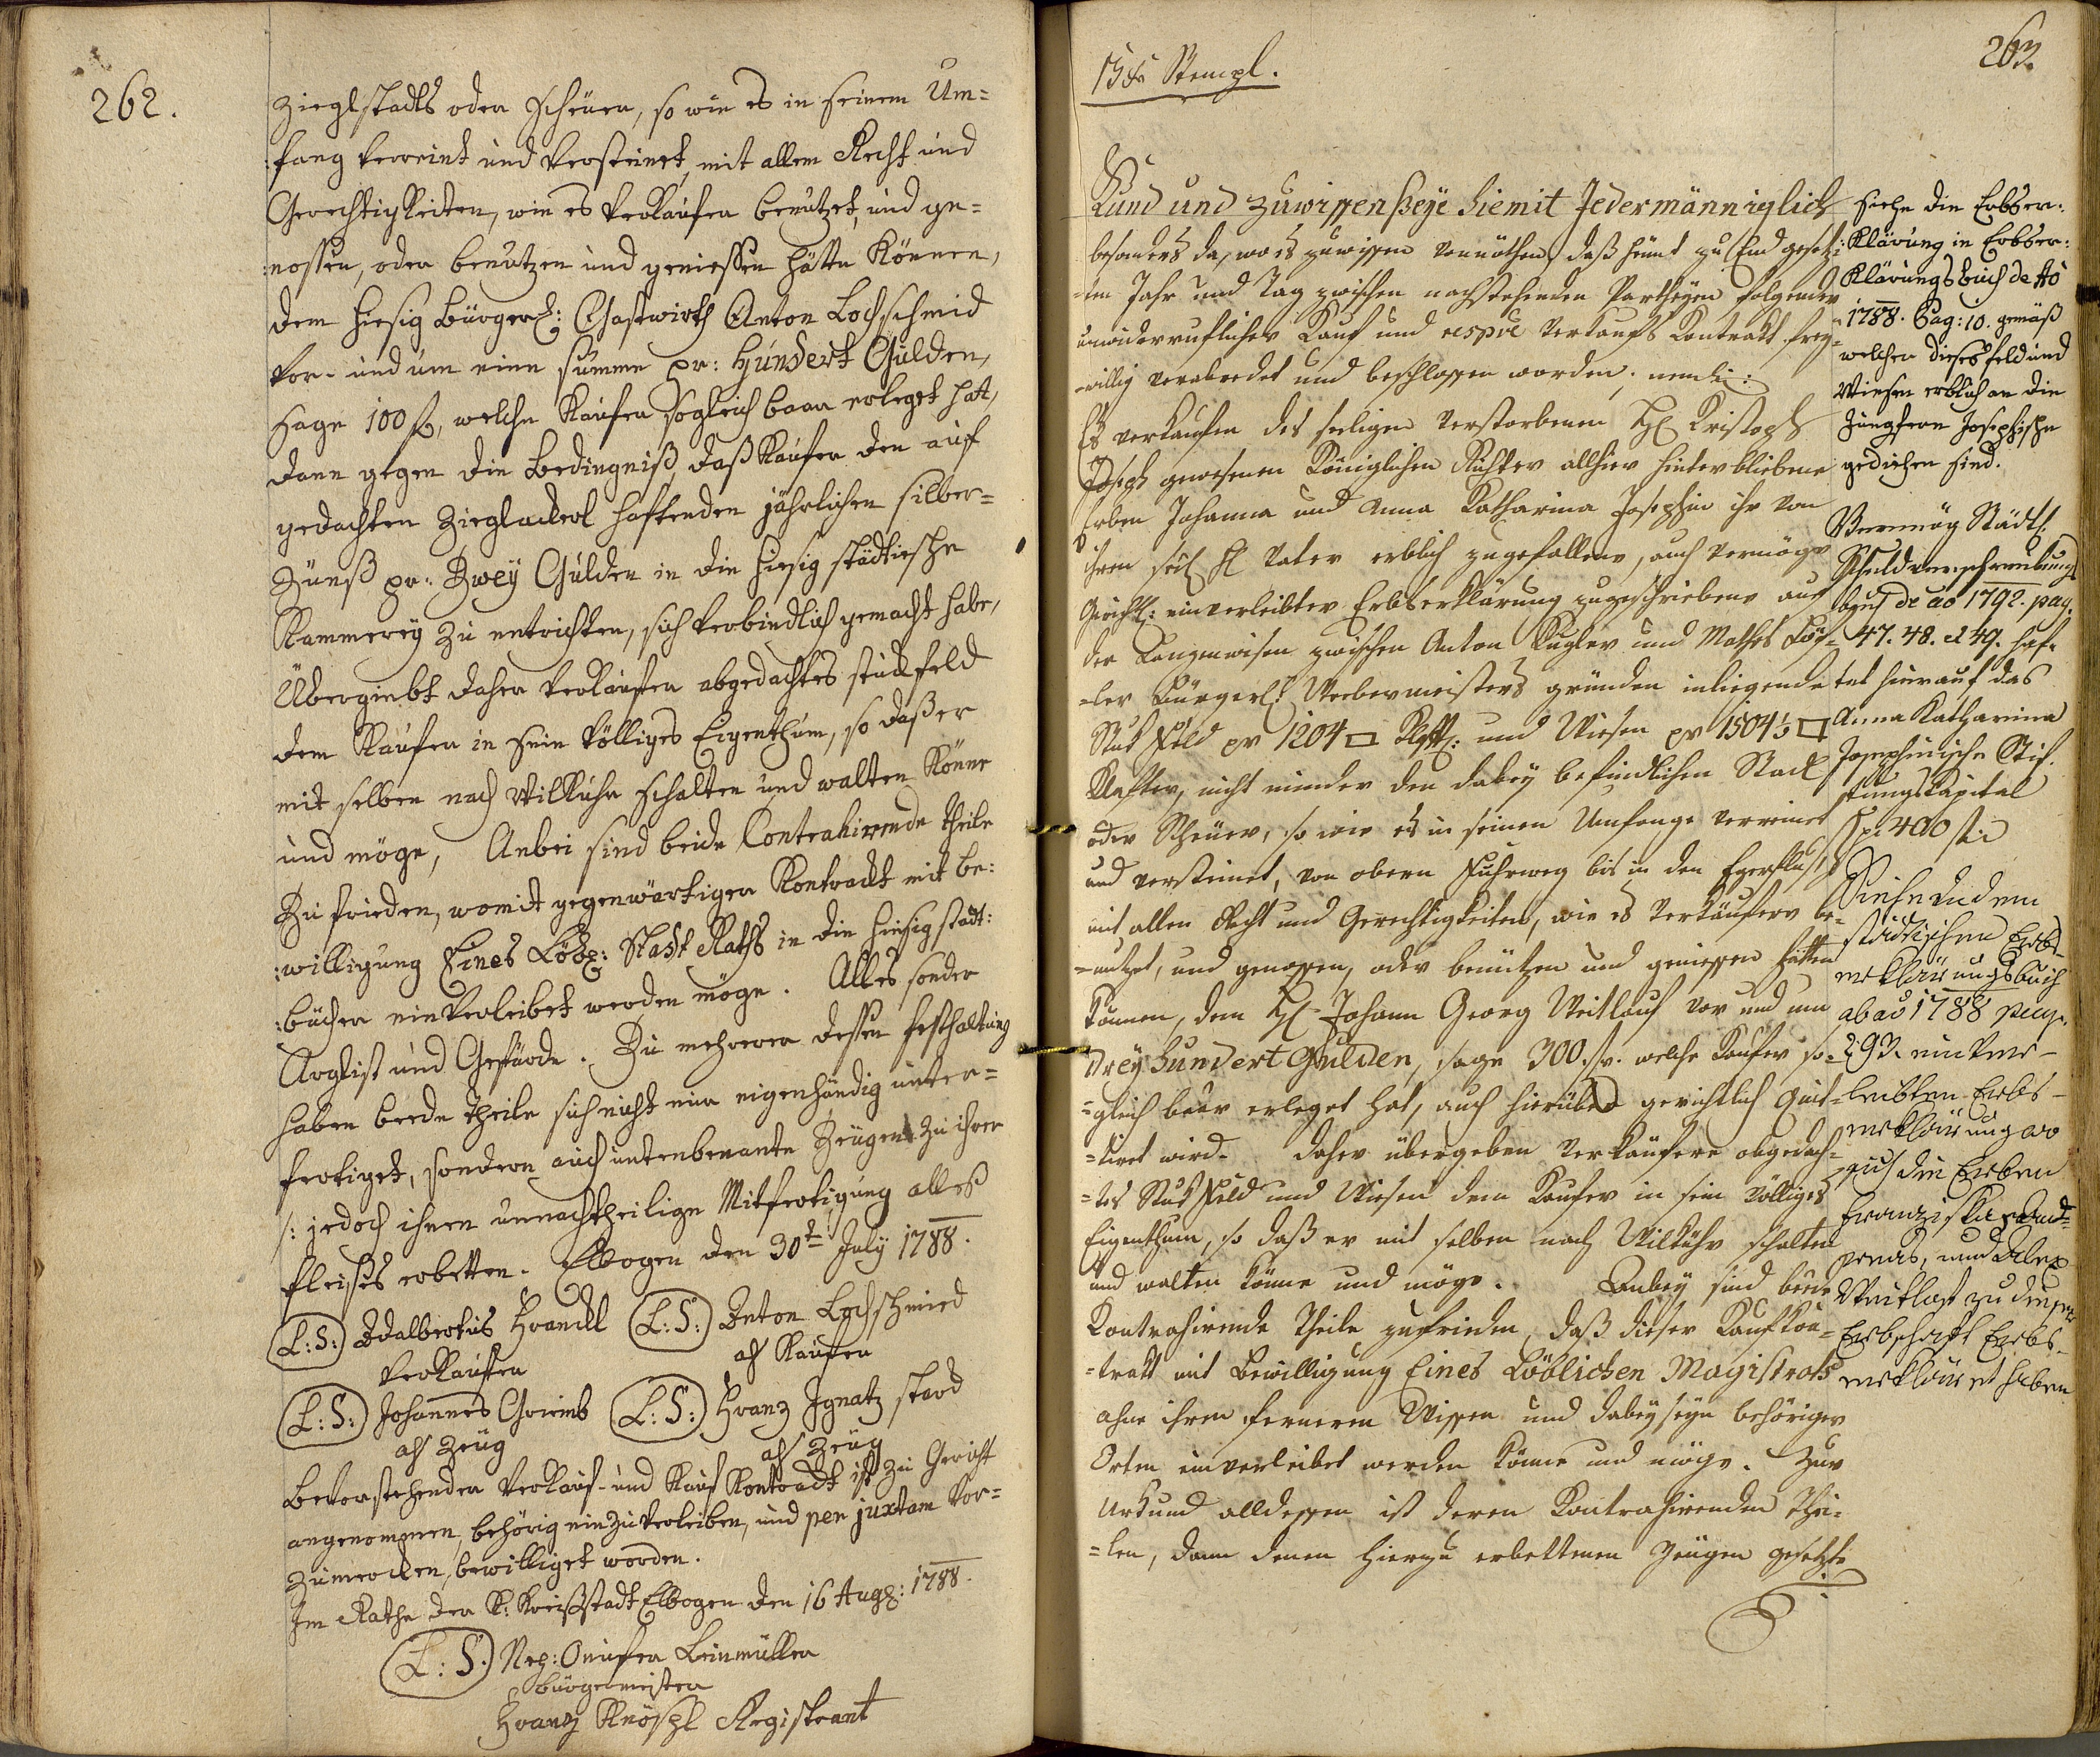 262.
Zieglstadls oder Scheuer, so wie es in seinem Um=
:fang verreint und versteinet, mit allem Recht und
Gerechtigkeiten, wie es Verkäufer benutzet, und ge=
:nossen, oder benutzen und geniessen hätte können,
dem hiesig bürgerl: Gastwirth Anton Lochschmid
vor- und um eine summe pr: Hundert Gulden,
sage 100 f, welche Käufer sogleich baar erleget hatt,
dann gegen die Bedingniß, daß Käufer den auf
gedachten Zieglackerl haftenden jährlichen silber=
Zünß pr: Zwey Gulden in die hiesig städtische
Kammerey zu entrichten, sich verbindlich gemacht habe,
Übergiebt daher Verkäufer abgedachtes stuckfeld
dem Käufer in sein völliges Eigenthum, so daß er
mit selben nach Willkuhr schalten und walten könne
und möge, Anbei sind beide Contrahirende theile
Zufrieden, womit gegenwärtiger Kontrackt mit be:
:willigung Eines Löbl: Stadt Raths in die hiesig stadt:
:bücher einverleibet werden möge. Alles sonder
Arglist und Gefärde. Zu mehrerer dessen festhaltung
haben beede theile sich nicht nur eigenhändig unter=
fertiget, sondern auch untenbenante Zeugen zu ihrer
/: jedoch ihnen unnachtheilige Mitfertigung alles
fleisses erbetten. Elbogen den 30t July 1788.
(L:S:) Adalbertus Handl (L:S:) Anton Lochschmied
Verkäuffer als Käufer
(L:S:) Johannes Grimb (L:S:) Franz Ignatz stard
als Zeug als Zeug
Bevorstehender Verkauf- und Kauf Kontrackt ist zu Gericht
angenommen, behörig einzuverleiben, und per juxtam vor=
zumerken, bewilliget worden.
Im Rathe der K: Kreißstadt Elbogen den 16 Augl: 1788.
(L:S:) Nep: Onufer Beinmüller
bürgermeister
Franz Knöspl Registrant
263.
15 Xr Stempl.
Kund und zuwissen seye hiemit Jedermänniglich
besonders da, wo es zuwissen vonnöthen, daß heunt zu End gesetz=
=ten Jahr und Tag zwischen nachstehenden Partheyen folgender
unwiderruflicher Kauf und respve Verkaufs Kontrakt frey=
=willig verabredet und beschlossen worden, nemli:
Es verkaufen des seeligen verstorbenen H: Kristoph
Joseph gewesenen Königlichen Richter allhier hinterbliebene
Erben Johanna und Anna Katharina Josephin ihr von
ihren seel H Vater erblich zugefallene, auch vermöge
Gerichtl: einverleibter Erbserklärung zugeschriebene auf
der Langenwiesen zwischen Anton Kugler und Mathes
=ler Bürgerl: Webermeisters gründen inliegende
Stuk Feld pr 1204 □ Klftl: und Wiesen pr 1504½ □
Klafter, nicht minder den dabey befindlichen Stadl
oder Scheuer, so wie es in seinen Umfange verreinet
und versteinet, von obern Fuhrweg bis in den Egerfluß,
mit allen Recht und Gerechtigkeiten, wie es Verkäufere be=
=nutzet, und genossen, oder benützen und geniessen hätten
können, dem H: Johann Georg Weitlauf vor und um
Drey hundert Gulden, sage 300. f. welche Kaufer so=
=gleich baar erleget hat, auch hierüber gerichtlich quit=
=tiret wird. Daher übergeben Verkäufere obgedach=
=tes Stuk Feld und Wiesen dem Kaufer in sein völliges
Eigenthum, so daß er mit selben nach Wilkühr schalten
und walten könne und möge. Anbey sind beede
Kontrahirende Theile zufrieden, daß dieser Kaufkon=
=trakt mit bewilligung Eines Löblichen Magistrats
ohne ihrem ferneren Wissen und dabeyseyn behöriger
Orten einverleibet werden könne und möge. Zur
Urkund alldessen ist deren Kontrahirenden Thei=
=len, dann denen hierzu erbettenen Zeugen gesetzte
Siehe die Erbser:
:Klärung in Erbser:
Klärungsbuch de Ao
1788. Pag: 10. gemäß
welcher dieses feld und
Wiesen erblich an die
Jungfern Josephische
gediehen sind.
Vermög Städtl.
Schuldverschreibungs
buch de ao 1792. pag.
47. 48. et 49. haf=
tet hierauf das
Anna Katharina
Josephinische Stif=
tungskapital
pr 400 f:
Siehe in dem
städtischen Erbs-
erklärungsbuch
ab ao 1788 pag.
293. einver-
leibten Erbs-
erklärung wo
sich die Erben
Franziska
und Alex
Weitlof zu dieser
Erbschaft Erbs-
erkläret haben